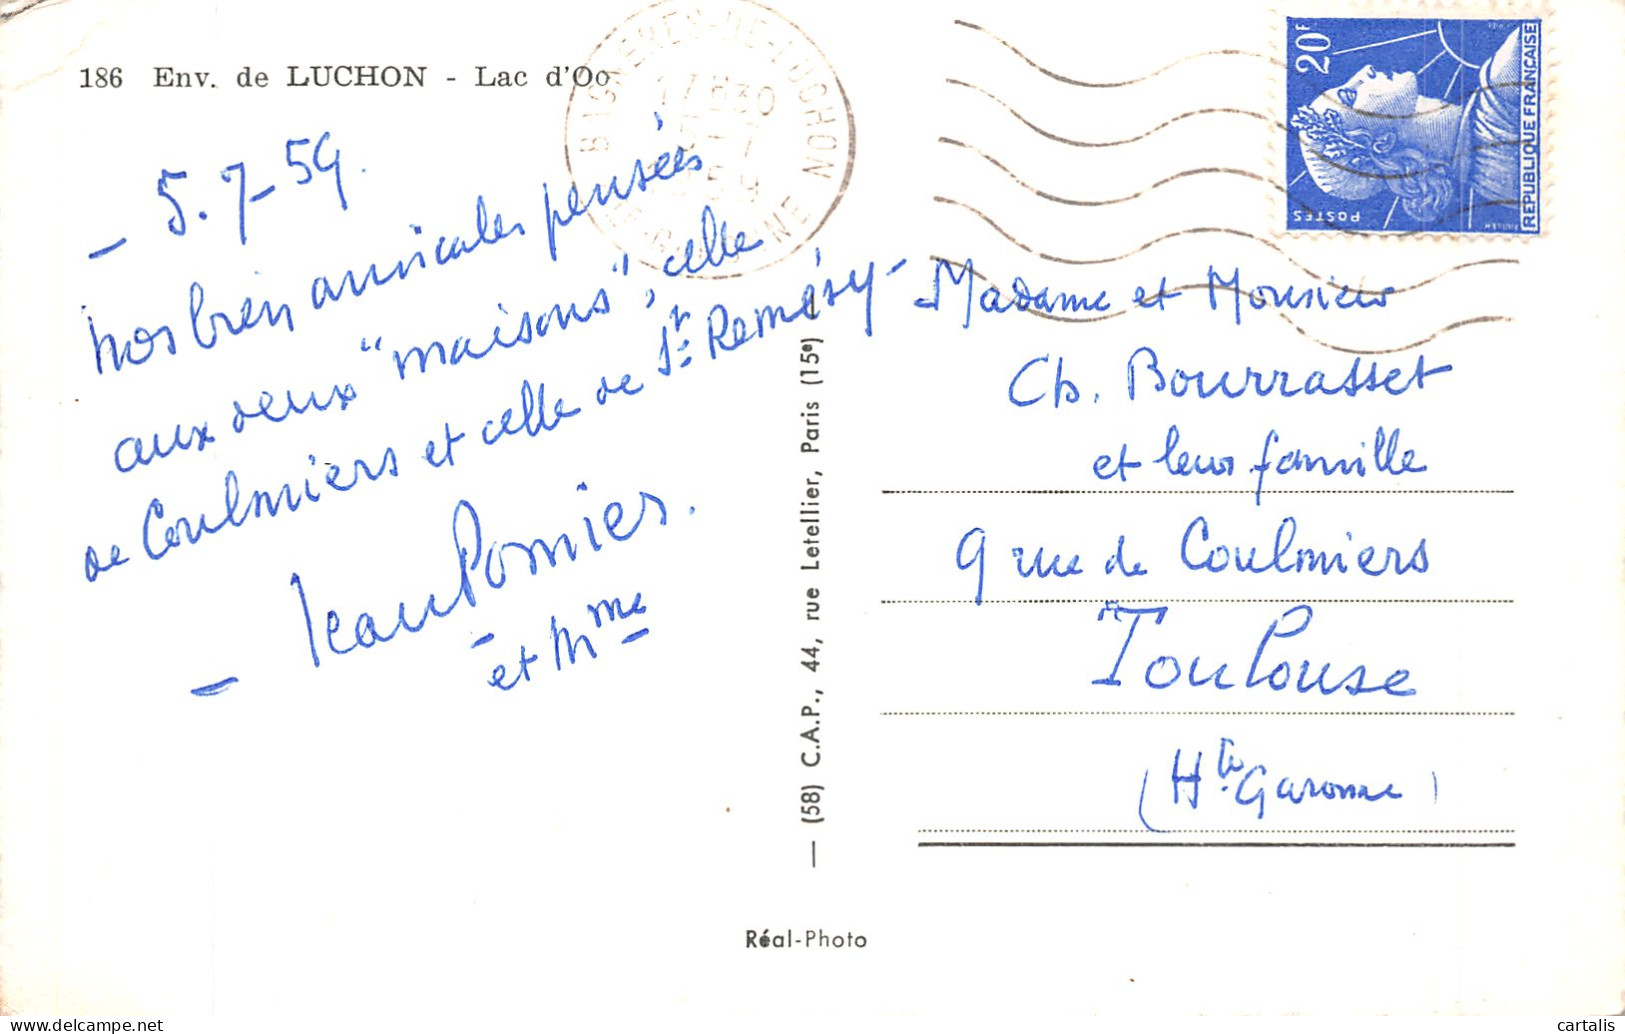 186 Env. de LUCHON - Lac d'Oo
- 5.7-59.
nos bien amicales pensées
aux deux "maisons", celle
de Coulmiers et celle de St Remésy -
- Jean Pomiès.
et Mme
- (58) C.A.P., 44, rue Letellier, Paris (15e)
Réal-Photo
BAGNERES-DE-LUCHON
17H30
5-7
HTE GARONNE
20F
POSTES
REPUBLIQUE FRANÇAISE
Madame et Monsieur
Ch. Bourrasset
et leur famille
9 rue de Coulmiers
Toulouse
(Hte Garonne)
cartalis